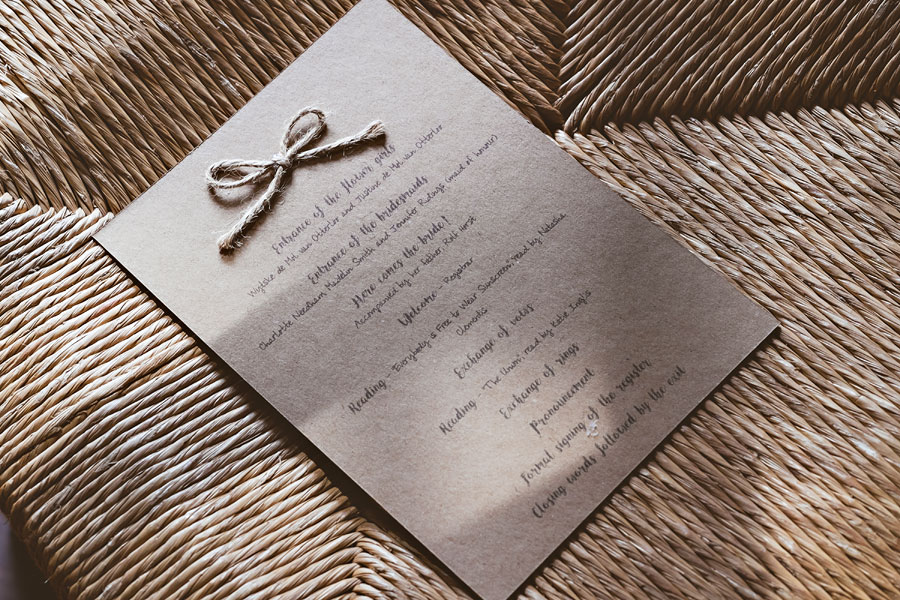 Entrance of the flower girls
Wytske de Mol van Otterloo and Justine de Mol van Otterloo
Entrance of the bridesmaids
Charlotte Needham, Madelin Smith and Jennifer Rutley (maid of honour)
Here comes the bride!
Accompanied by her Father, Rolf Horst
Welcome - Registrar
Reading - 'Everybody is Free to Wear Sunscreen', read by Natasha
Clements
Exchange of vows
Reading - 'The Union', read by Katie Inglis
Exchange of rings
Pronouncement
Formal signing of the register
Closing words followed by the exit